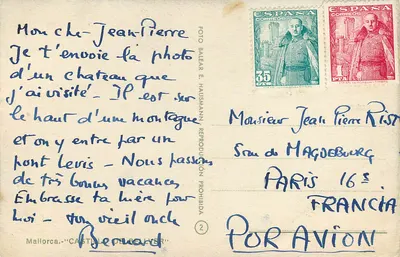 Mon che- Jean-Pierre
Je t'envoie la photo
d'un chateau que
j'ai visité - Il est sur
le haut d'une montagne
et on y entre par un
pont levis - Nous passons
de très bonnes vacances
Embrasse ta mère pour
moi - ton vieil oncle
Bernard
Mallorca.-"CASTILLO
FOTO BALEAR E. HAUSMANN REPRODUCCION PROHIBIDA
2
ESPAÑA
CORREOS
35
CTS
ESPAÑA
CORREOS
1
PTA
Monsieur Jean Pierre RIST
5 rue de MAGDEBOURG
PARIS 16e
FRANCIA
POR AVION